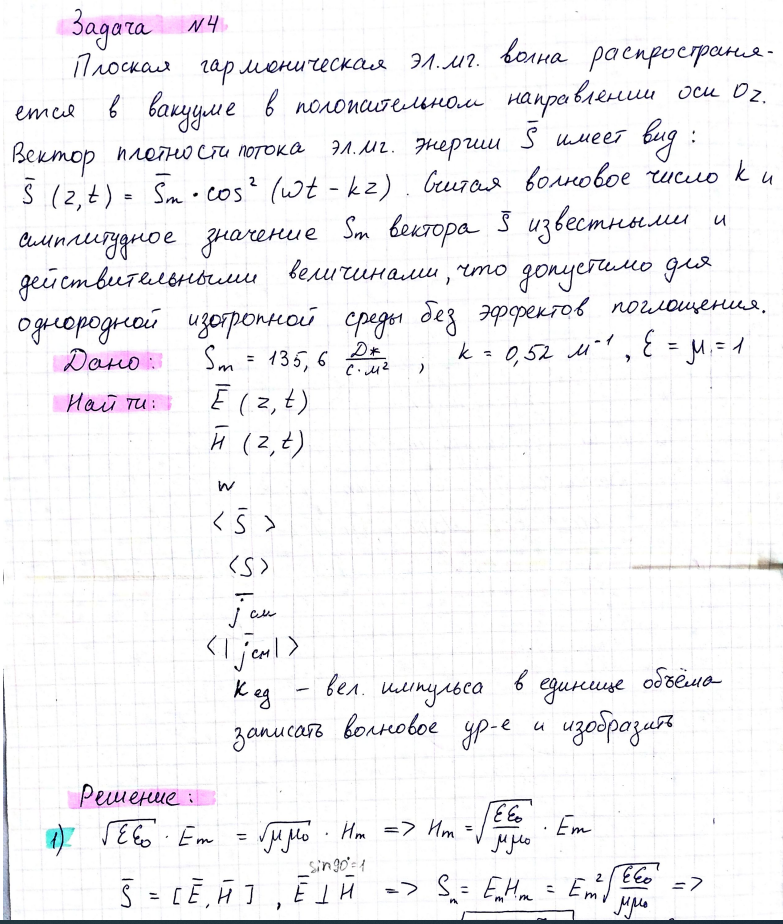 Задача №4
Плоская гармоническая эл.мг. волна распространя-
ется в вакууме в положительном направлении оси Oz.
Вектор плотности потока эл.мг. энергии S̄ имеет вид:
S̄ (z,t) = S̄m · cos² (ωt - kz). Считая волновое число k и
амплитудное значение Sm вектора S̄ известными и
действительными величинами, что допустимо для
однородной изотропной среды без эффектов поглощения.
Дано: Sm = 135,6 Дж/(с·м²) , k = 0,52 м⁻¹ , ε = μ = 1
Найти: Ē (z,t)
H̄ (z,t)
w
< S̄ >
<S>
j̄ см
<| j̄см| >
Kед - вел. импульса в единице объёма
записать волновое ур-е и изобразить
Решение:
1) √(εε₀) · Em = √(μμ₀) · Hm => Hm = √(εε₀/μμ₀) · Em
sin90°=1
S̄ = [Ē, H̄ ] , Ē ⊥ H̄ => Sm = EmHm = Em² √(εε₀/μμ₀) =>